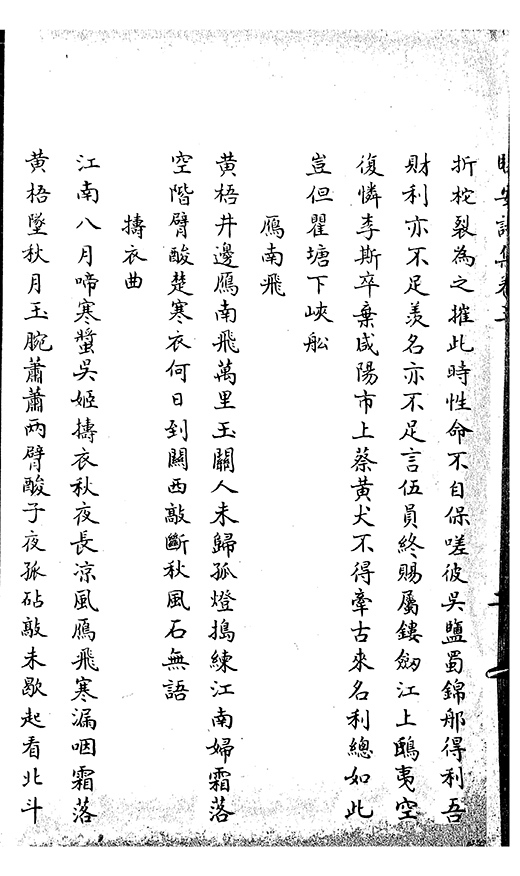 折柁裂為之摧此時性命不自保嗟彼吳鹽蜀錦那得利吾
財利亦不足羨名亦不足言伍員終賜屬鏤劒江上鴟夷空
復憐李斯卒棄咸陽市上蔡黃犬不得牽古來名利總如此
豈但瞿塘下峽舩
鴈南飛
黃梧井邊鴈南飛萬里玉關人未歸孤燈搗練江南婦霜落
空階臂酸楚寒衣何日到關西敲斷秋風石無語
擣衣曲
江南八月啼寒螿吳姬擣衣秋夜長凉風鴈飛寒漏咽霜落
黃梧墜秋月玉腕蕭蕭兩臂酸子夜孤砧敲未歇起看北斗